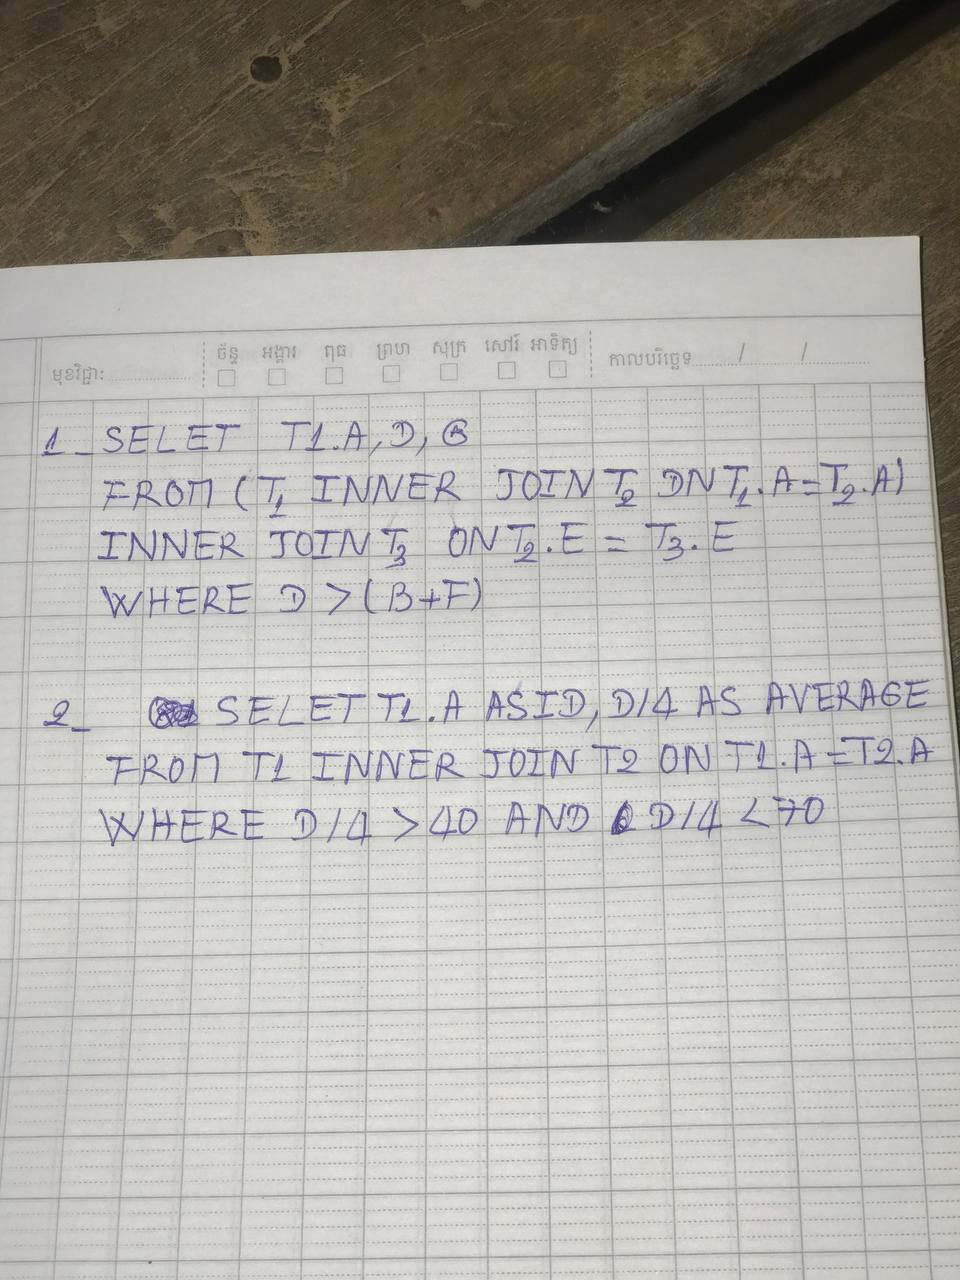 ច័ន្ទ អង្គារ ពុធ ព្រហ សុក្រ សៅរ៍ អាទិត្យ
មុខវិជ្ជា: កាលបរិច្ឆេទ / /
1_ SELET T1.A, D, B
FROM (T1 INNER JOIN T2 ON T1.A=T2.A)
INNER JOIN T3 ON T2.E = T3.E
WHERE D > (B+F)
2_ SELET T1.A AS ID, D/4 AS AVERAGE
FROM T1 INNER JOIN T2 ON T1.A=T2.A
WHERE D/4 > 40 AND D/4 < 70